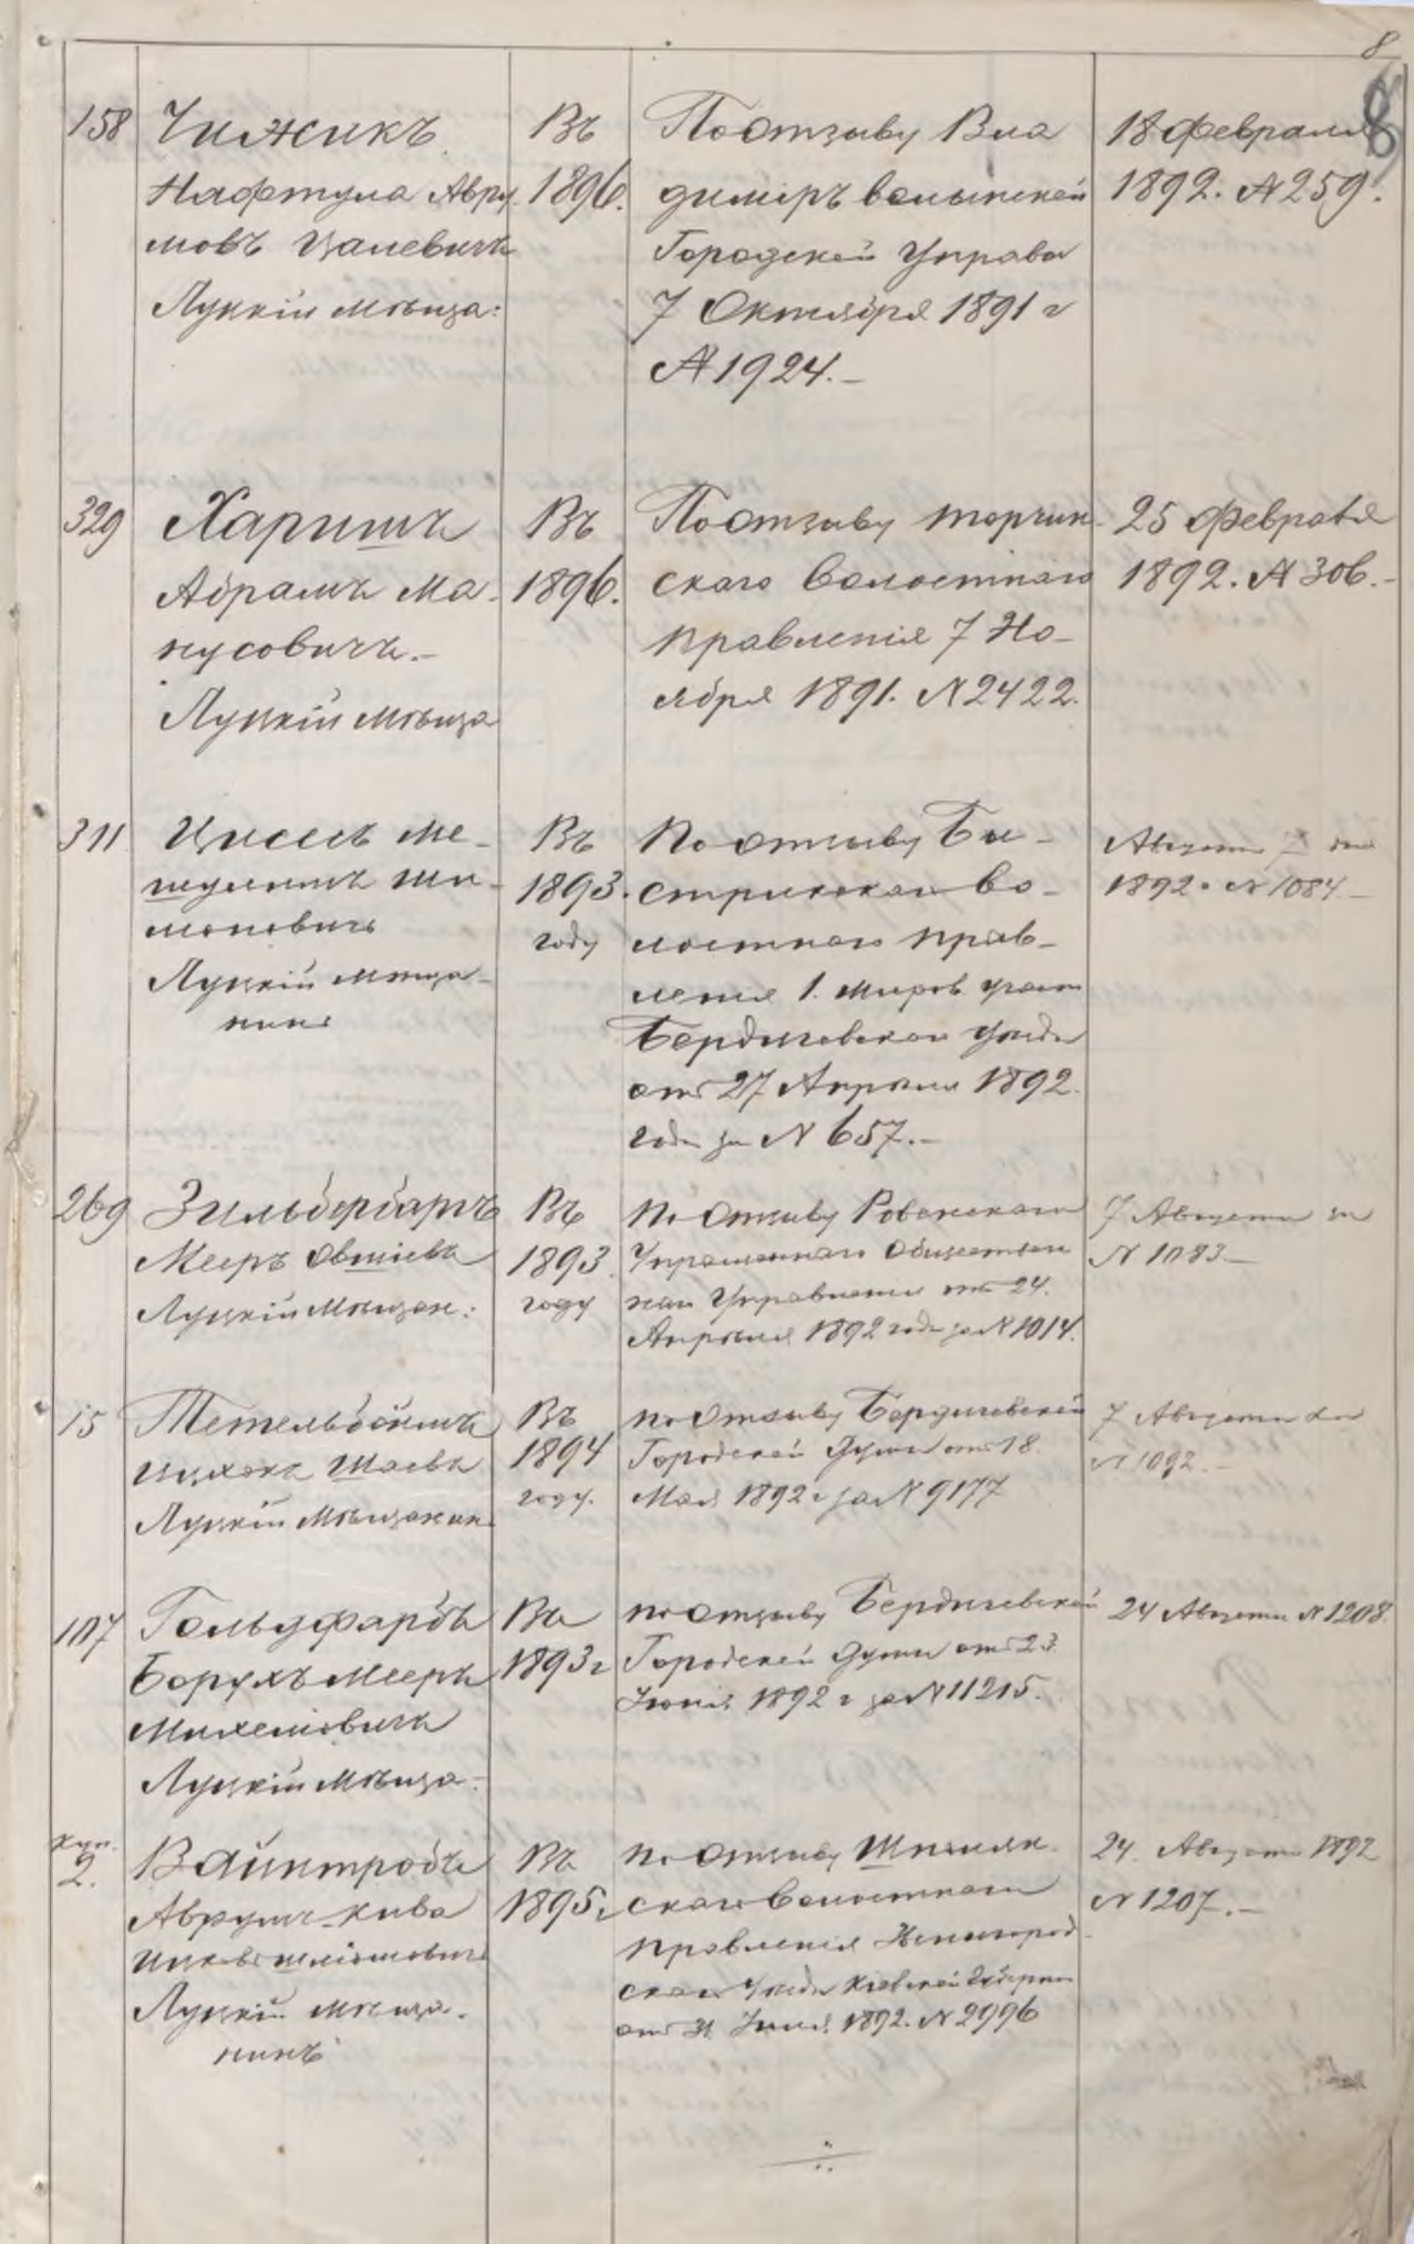 8
8
158
Чижикъ
Нафтула Авру
мовъ Цалевичъ
Луцкій мѣща:
Въ
1896.
По отзыву Вла
димиръ волынской
Городской Управы
7 Октября 1891 г
№ 1924.–
18 февраля
1892. № 259.
329
Харишъ
Абрамъ Ма-
нусовичъ.–
Луцкій мѣща
Въ
1896.
По отзыву торчин
скаго Волостнаго
правленія 7 Но-
ября 1891. № 2422.
25 февраля
1892. № 306.–
311
Цисесъ Ме-
шулимъ Ши-
моновичъ
Луцкій мѣща-
нинъ
Въ
1893.
году
По отзыву Бы-
стрикскаго во-
лостнаго прав-
ленія 1. Миров. участ
Бердичевскаго уезда
отъ 27 Апрѣля 1892.
года за № 657.–
Августа 7 дня
1892. № 1084.–
269
Зильбербартъ
Мееръ Овшіевъ
Луцкій Мѣщан:
Въ
1893.
году
По Отзыву Ровенскаго
Упрощеннаго Обществен
наго Управленія отъ 24.
Апрѣля 1892 года за № 1014.
7 Августа за
№ 1083–
15
Тетельбоймъ
Ицхокъ Шаевъ
Луцкій Мѣщанин
Въ
1894
году.
по Отзыву Бердичевской
Городской Думы отъ 18.
Мая 1892 г за № 9177
7 Августа
№ 1092.–
107
Гольдфарбъ
Борухъ Мееръ
Михелiовичъ
Луцкій Мѣща-
Въ
1893 г
по отзыву Бердичевской
Городской Думы отъ 23
Іюня 1892 г за № 11215.
24 Августа № 1208.
куп.
2.
Вайнтробъ
Аврумъ-кива
Ицковъ шліомовичъ
Луцкій мѣща-
нинъ
Въ
1895 г
по Отзыву Шполян
скаго Волостнаго
правленія Звенигород
скаго Уезда Кіевской Губерни
отъ 31 1892. № 2996
24. Августа 1892
№ 1207.–